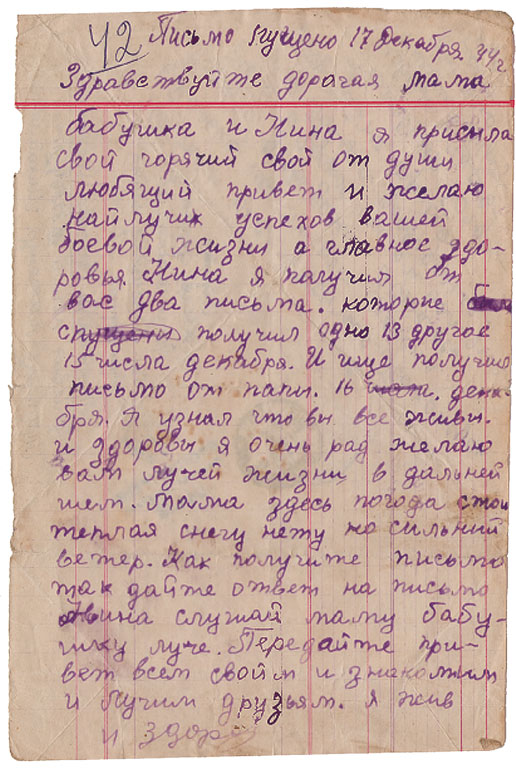 42 Письмо пущено 17 декабря 44 г
Здравствуйте дорогая мама
бабушка и Нина я присыла
свой горячий свой от души
любящий привет и желаю
найлучих успехов вашей
боевой жизни а главное здо-
ровья. Нина я получил от
вас два письма. которие
спущени получил одно 13 другое
15 числа декабря. И ище получил
письмо от папи. 16 числа. дека-
бря. Я узнал что ви все живи.
и здорови я очень рад желаю
вам лучей жизни в дальней
шем. Мама здесь погода стои
теплая снегу нету но сильний
ветер. Как получите письмо
так дайте ответ на письмо
Нина слушай маму бабу-
шку луче. Передайте при-
вет всем своим и знакомим
и лучим друзьям. Я жив
и здоров